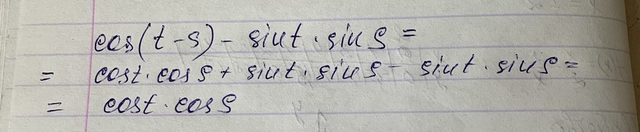 cos(t-s) - sint · sin s =
= cost · cos s + sint · sin s - sint · sin s =
= cost · cos s